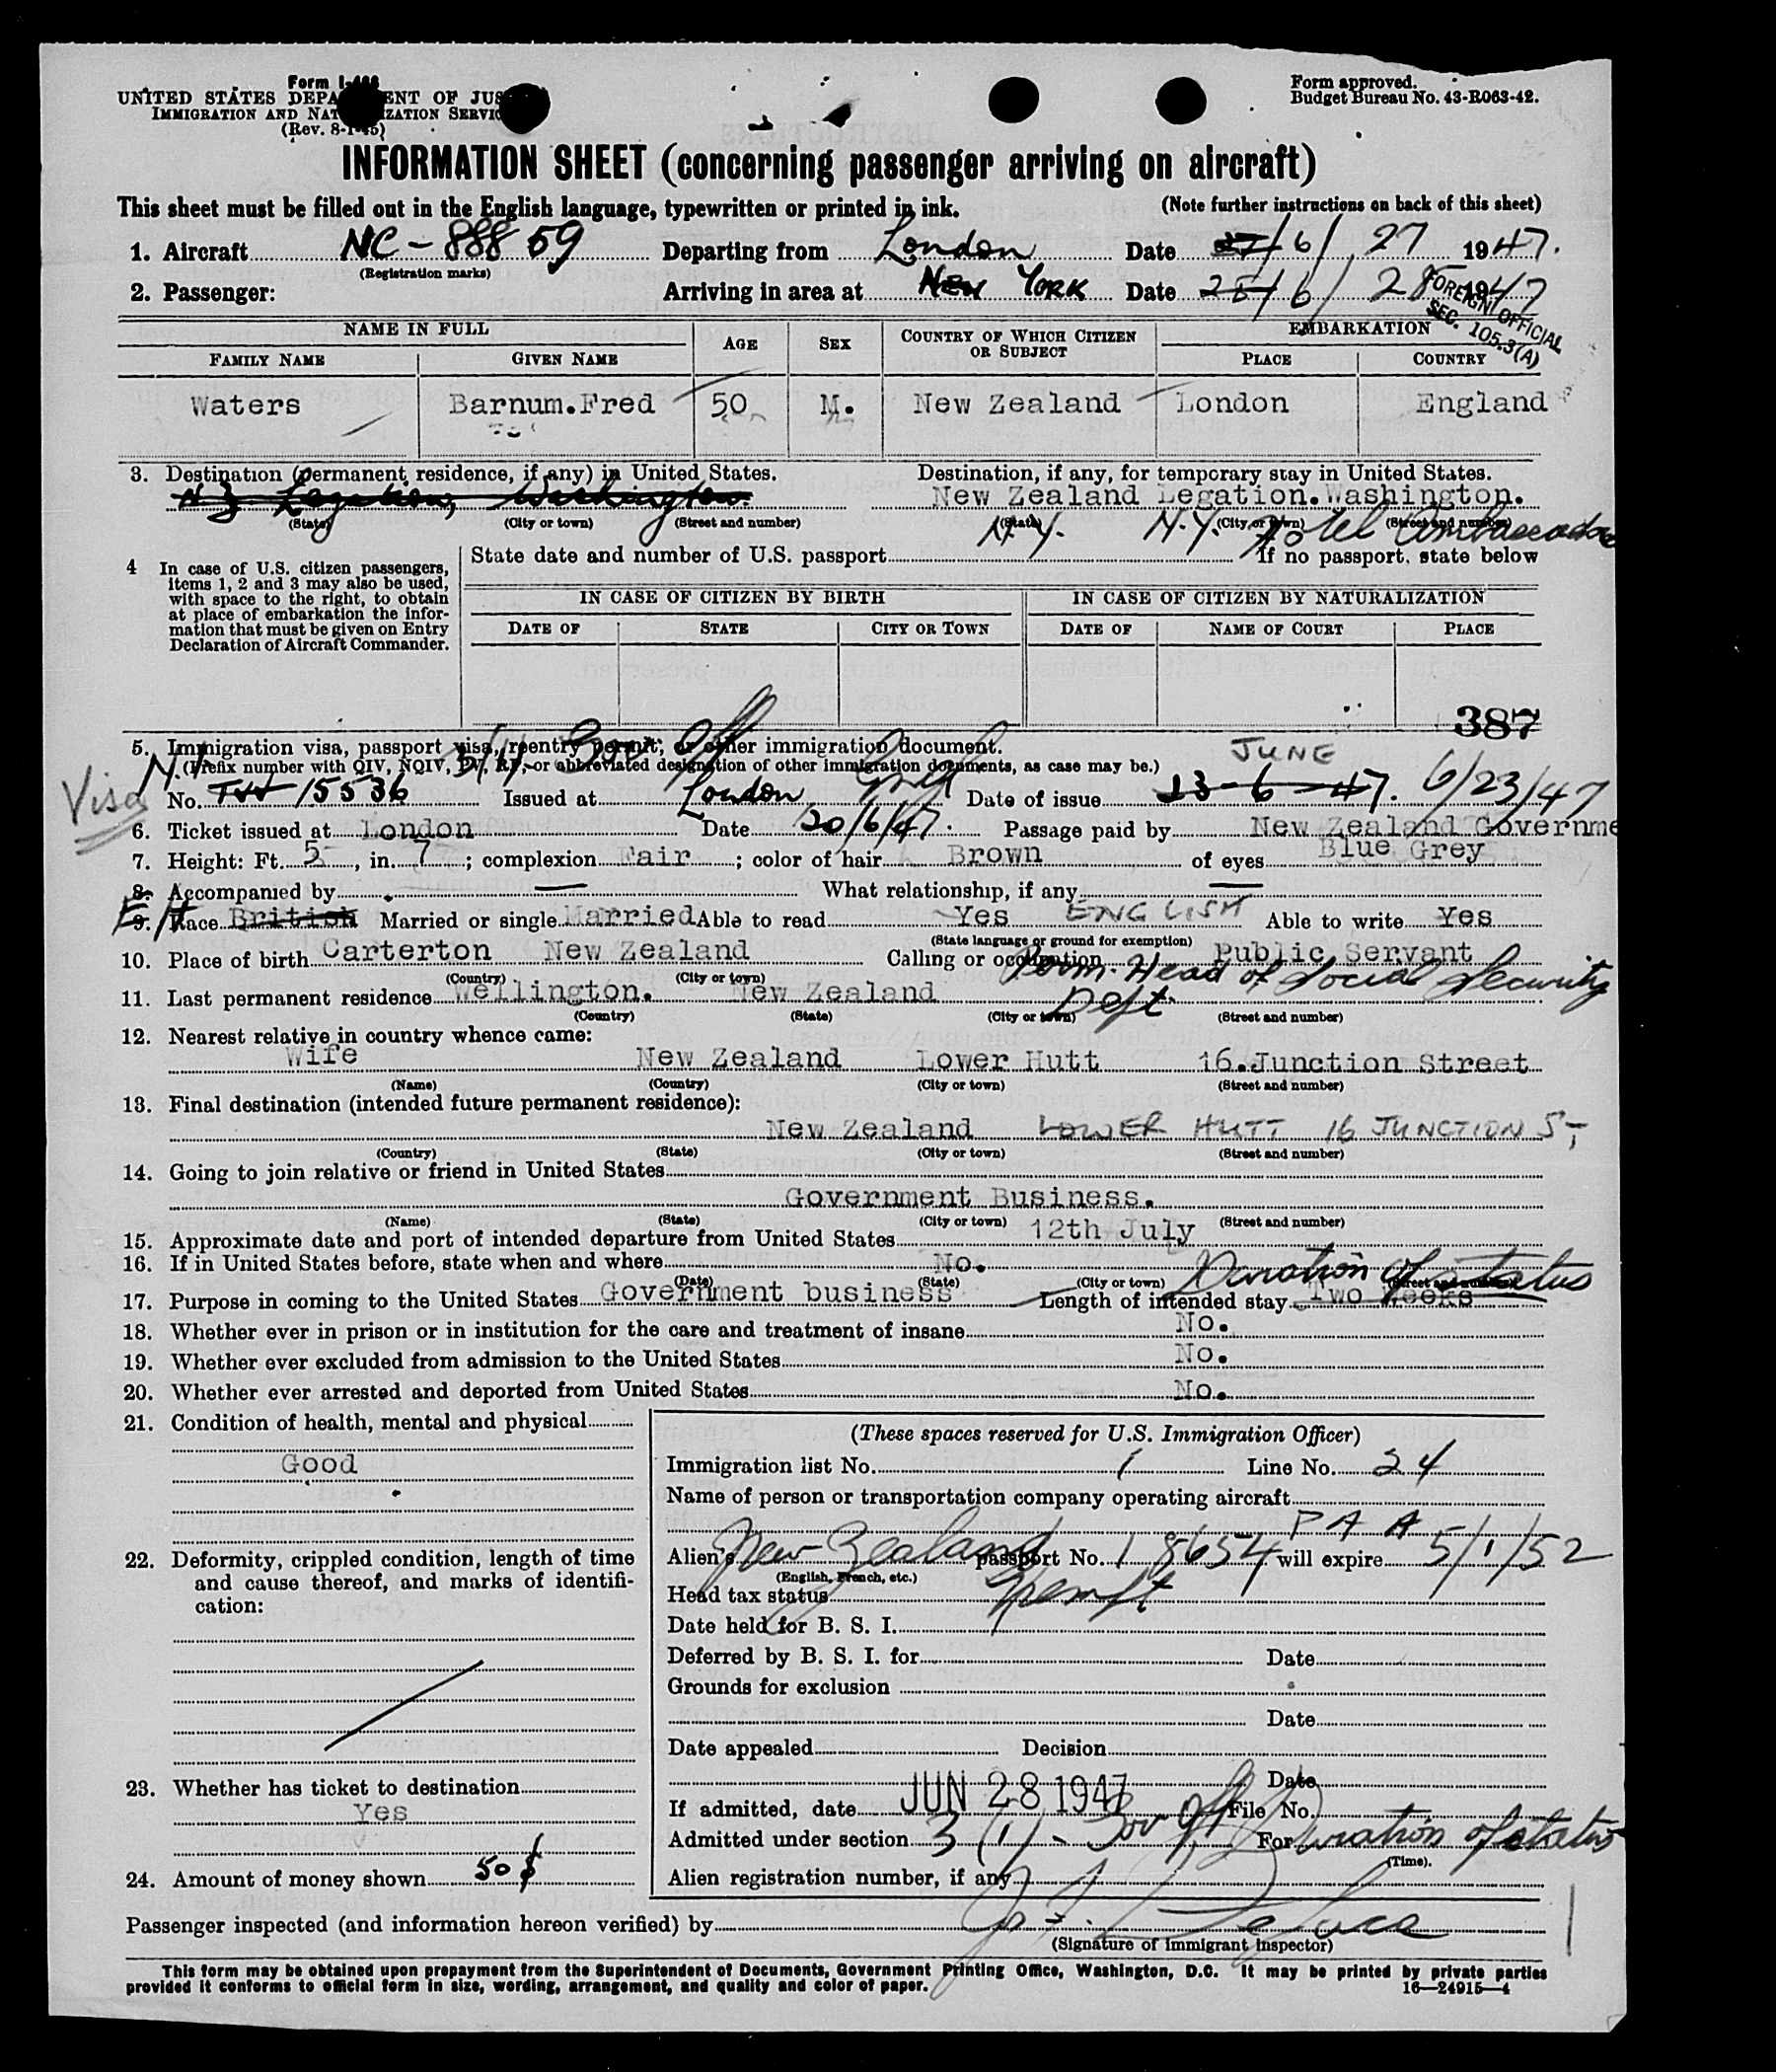 Form I-466
UNITED STATES DEPARTMENT OF JUSTICE
IMMIGRATION AND NATURALIZATION SERVICE
(Rev. 8-1-45)
Form approved.
Budget Bureau No. 43-R063-42.
INFORMATION SHEET (concerning passenger arriving on aircraft)
This sheet must be filled out in the English language, typewritten or printed in ink. (Note further instructions on back of this sheet)
1. Aircraft NC-88859 Departing from London Date 6/27 1947.
(Registration marks)
2. Passenger: Arriving in area at NEW YORK Date 28/6/28 1947
FOREIGN OFFICIAL
SEC. 105.3(A)
NAME IN FULL AGE SEX COUNTRY OF WHICH CITIZEN OR SUBJECT EMBARKATION
FAMILY NAME GIVEN NAME PLACE COUNTRY
Waters Barnum.Fred 50 M. New Zealand London England
3. Destination (permanent residence, if any) in United States. Destination, if any, for temporary stay in United States.
NZ Legation, Washington. New Zealand Legation.Washington.
(State) (City or town) (Street and number) (State) (City or town) (Street and number)
N.Y. N.Y. Hotel Ambassador
4 In case of U.S. citizen passengers, items 1, 2 and 3 may also be used, with space to the right, to obtain at place of embarkation the information that must be given on Entry Declaration of Aircraft Commander.
State date and number of U.S. passport If no passport, state below
IN CASE OF CITIZEN BY BIRTH IN CASE OF CITIZEN BY NATURALIZATION
DATE OF STATE CITY OR TOWN DATE OF NAME OF COURT PLACE
387
5. Immigration visa, passport visa, reentry permit, or other immigration document.
(Prefix number with QIV, NQIV, PV, RP, or abbreviated designation of other immigration documents, as case may be.) JUNE
Visa No. 15536 Issued at London Engl Date of issue 23-6-47. 6/23/47
3(1) Gov Off
6. Ticket issued at London Date 20/6/47. Passage paid by New Zealand Governme
7. Height: Ft. 5, in. 7; complexion Fair; color of hair Brown of eyes Blue Grey
8. Accompanied by — What relationship, if any —
9. Race British Married or single Married Able to read Yes ENGLISH Able to write Yes
(State language or ground for exemption)
10. Place of birth Carterton New Zealand Calling or occupation Public Servant
(Country) (City or town) Perm. Head of Social Security
11. Last permanent residence Wellington. New Zealand Dept.
(Country) (State) (City or town) (Street and number)
12. Nearest relative in country whence came:
Wife New Zealand Lower Hutt 16.Junction Street
(Name) (Country) (City or town) (Street and number)
13. Final destination (intended future permanent residence):
New Zealand LOWER HUTT 16 JUNCTION ST
(Country) (State) (City or town) (Street and number)
14. Going to join relative or friend in United States
Government Business.
(Name) (State) (City or town) (Street and number)
15. Approximate date and port of intended departure from United States 12th July
16. If in United States before, state when and where No.
(Date) (State) (City or town) (Street and number)
Duration of status
17. Purpose in coming to the United States Government business Length of intended stay Two Weeks
18. Whether ever in prison or in institution for the care and treatment of insane No.
19. Whether ever excluded from admission to the United States No.
20. Whether ever arrested and deported from United States No.
21. Condition of health, mental and physical
Good
22. Deformity, crippled condition, length of time and cause thereof, and marks of identification:
23. Whether has ticket to destination
Yes
24. Amount of money shown 50 $
(These spaces reserved for U.S. Immigration Officer)
Immigration list No. 1 Line No. 24
Name of person or transportation company operating aircraft
P A A
Alien's New Zealand passport No. 18654 will expire 5/1/52
(English, French, etc.)
Head tax status Exempt
Date held for B. S. I.
Deferred by B. S. I. for Date
Grounds for exclusion
Date
Date appealed Decision
Date
If admitted, date JUN 28 1947 File No.
Admitted under section 3(1) - Gov Off For Duration of status
(Time).
Alien registration number, if any
Passenger inspected (and information hereon verified) by
(Signature of immigrant inspector)
This form may be obtained upon prepayment from the Superintendent of Documents, Government Printing Office, Washington, D.C. It may be printed by private parties
provided it conforms to official form in size, wording, arrangement, and quality and color of paper. 16—24915-4